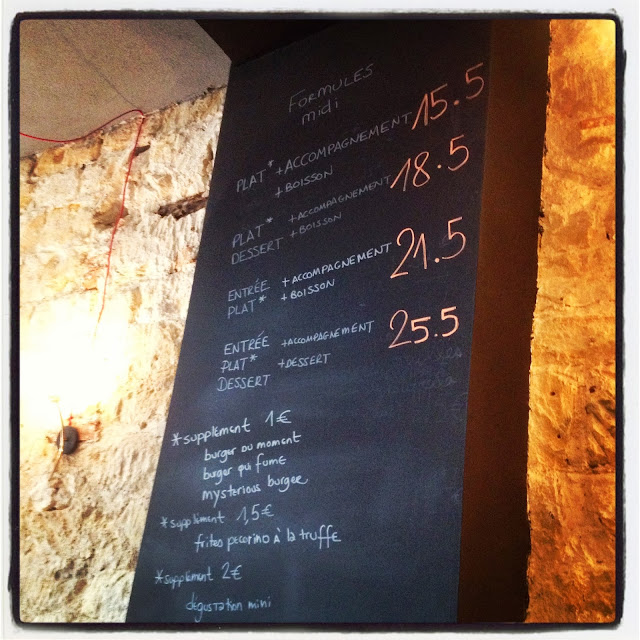 FORMULES
midi
PLAT* + ACCOMPAGNEMENT 15.5
+ BOISSON
PLAT* + ACCOMPAGNEMENT 18.5
DESSERT + BOISSON
ENTRÉE + ACCOMPAGNEMENT 21.5
PLAT* + BOISSON
ENTRÉE + ACCOMPAGNEMENT 25.5
PLAT* + DESSERT
DESSERT
*supplément 1€
burger du moment
burger qui fume
mysterious burger
*supplément 1,5€
frites pecorino à la truffe
*supplément 2€
dégustation mini